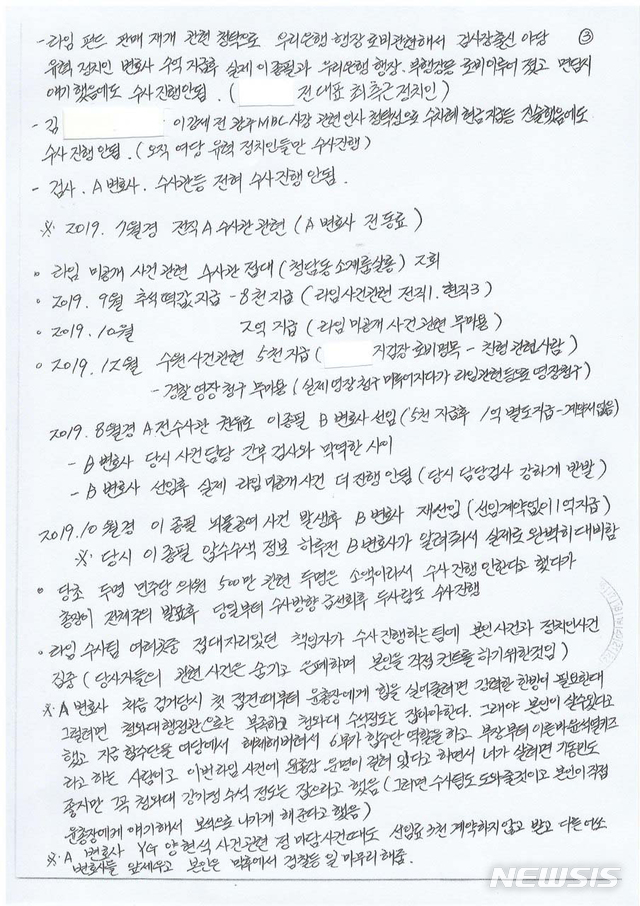 ③
- 라임 펀드 판매 재개 관련 청탁으로 우리은행 행장 로비관련해서 검사장출신 야당
유력 정치인 변호사 수억 지급후 실제 이종필과 우리은행 행장. 부행장등 로비이루어 졌고 면담시
얘기 했음에도 수사 진행안됨. ( 전 대표 최측근 정치인 )
- 김 이강제 전 광주MBC사장 관련 인사 청탁성으로 수차례 현금 지급등 진술했음에도
수사 진행 안됨. ( 오직 여당 유력 정치인들만 수사진행 )
- 검사. A 변호사. 수사관등 전혀 수사 진행 안됨.
※. 2019. 7월경 전직 A 수사관 관련 ( A 변호사 전 동료 )
• 라임 미공개 사건 관련 수사관 접대 ( 청담동 소재룸살롱 ) 2회
• 2019. 9월 추석 떡값 지급 - 8천 지급 ( 라임사건관련 전직1. 현직3 )
• 2019. 10월 2억 지급 ( 라임 미공개 사건 관련 무마용 )
• 2019. 12월 수원 사건관련 5천 지급 ( 지검장 로비명목 - 친형 관련사람 )
- 경찰 영장 청구 무마용 ( 실제 영장 청구 미루어지다가 라임관련등으로 영장청구 )
2019. 8월경 A 전수사관 이종필 B 변호사 선임 ( 5천 지급후 1억 별도지급 - 계약서없음 )
- B 변호사 당시 사건 담당 간부 검사와 막역한 사이
- B 변호사 선임후 실제 라임 미공개사건 더 진행 안됨 ( 당시 담당검사 강하게 반발 )
2019. 10월경 이종필 뇌물공여 사건 발생후 B 변호사 재선임 ( 선임계약없이 1억지급 )
※. 당시 이종필 압수수색 정보 하루전 B 변호사가 알려줘서 실제로 완벽히 대비함
• 당초 두명 민주당 의원 500만 관련 두명은 소액이라서 수사 진행 안한다고 했다가
총장이 전체주의 발표후 당일부터 수사방향 급선회후 두사람도 수사진행
• 라임 수사팀 여러차례 접대자리있던 책임자가 수사 진행하는 팀에 본인 사건과 정치인사건
집중 ( 당사자들의 관련 사건은 숨기고 은폐하며 본인을 직접 컨트롤 하기위한것임 )
※ A 변호사 처음 검거당시 첫 접견때부터 윤총장에게 힘을 실어줄려면 강력한 한방이 필요한데
그럴려면 청와대 행정관으로는 부족하고 청와대 수석정도는 잡아야한다. 그래야 본인이 살수있다고
했고 지금 합수단을 여당에서 해체해버려서 6부가 합수단 역할을 하고 부장부터 이른바 윤석열키즈
라고 하는 사람이고 이번 라임 사건에 윤총장 운명이 걸려 있다고 하면서 네가 살려면 기동민도
좋지만 꼭 청와대 강기정 수석 정도는 잡으라고 했음 ( 그러면 수사팀도 도와줄것이고 본인이 직접
윤총장에게 얘기해서 보석으로 나가게 해준다고 했음 )
※. A 변호사 YG 양현석 사건관련 정마담사건때도 선임료 3천 계약하지 않고 받고 다른
변호사들 앞세우고 본인은 막후에서 검찰등 일 마무리 해줌.
NEWSIS